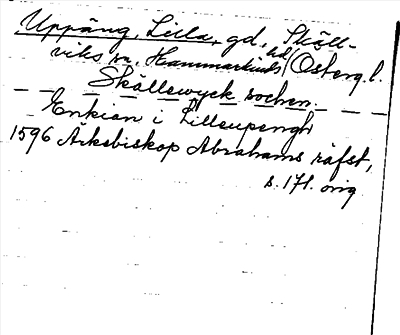 Uppäng, Lilla, gd, Sköll-
viks sn, Hammarkinds hd, Österg. l.
Sköllewyck sochen.
Enkian i Lilleupengh
1596 Ärkebiskop Abrahams räfst,
s. 171. orig